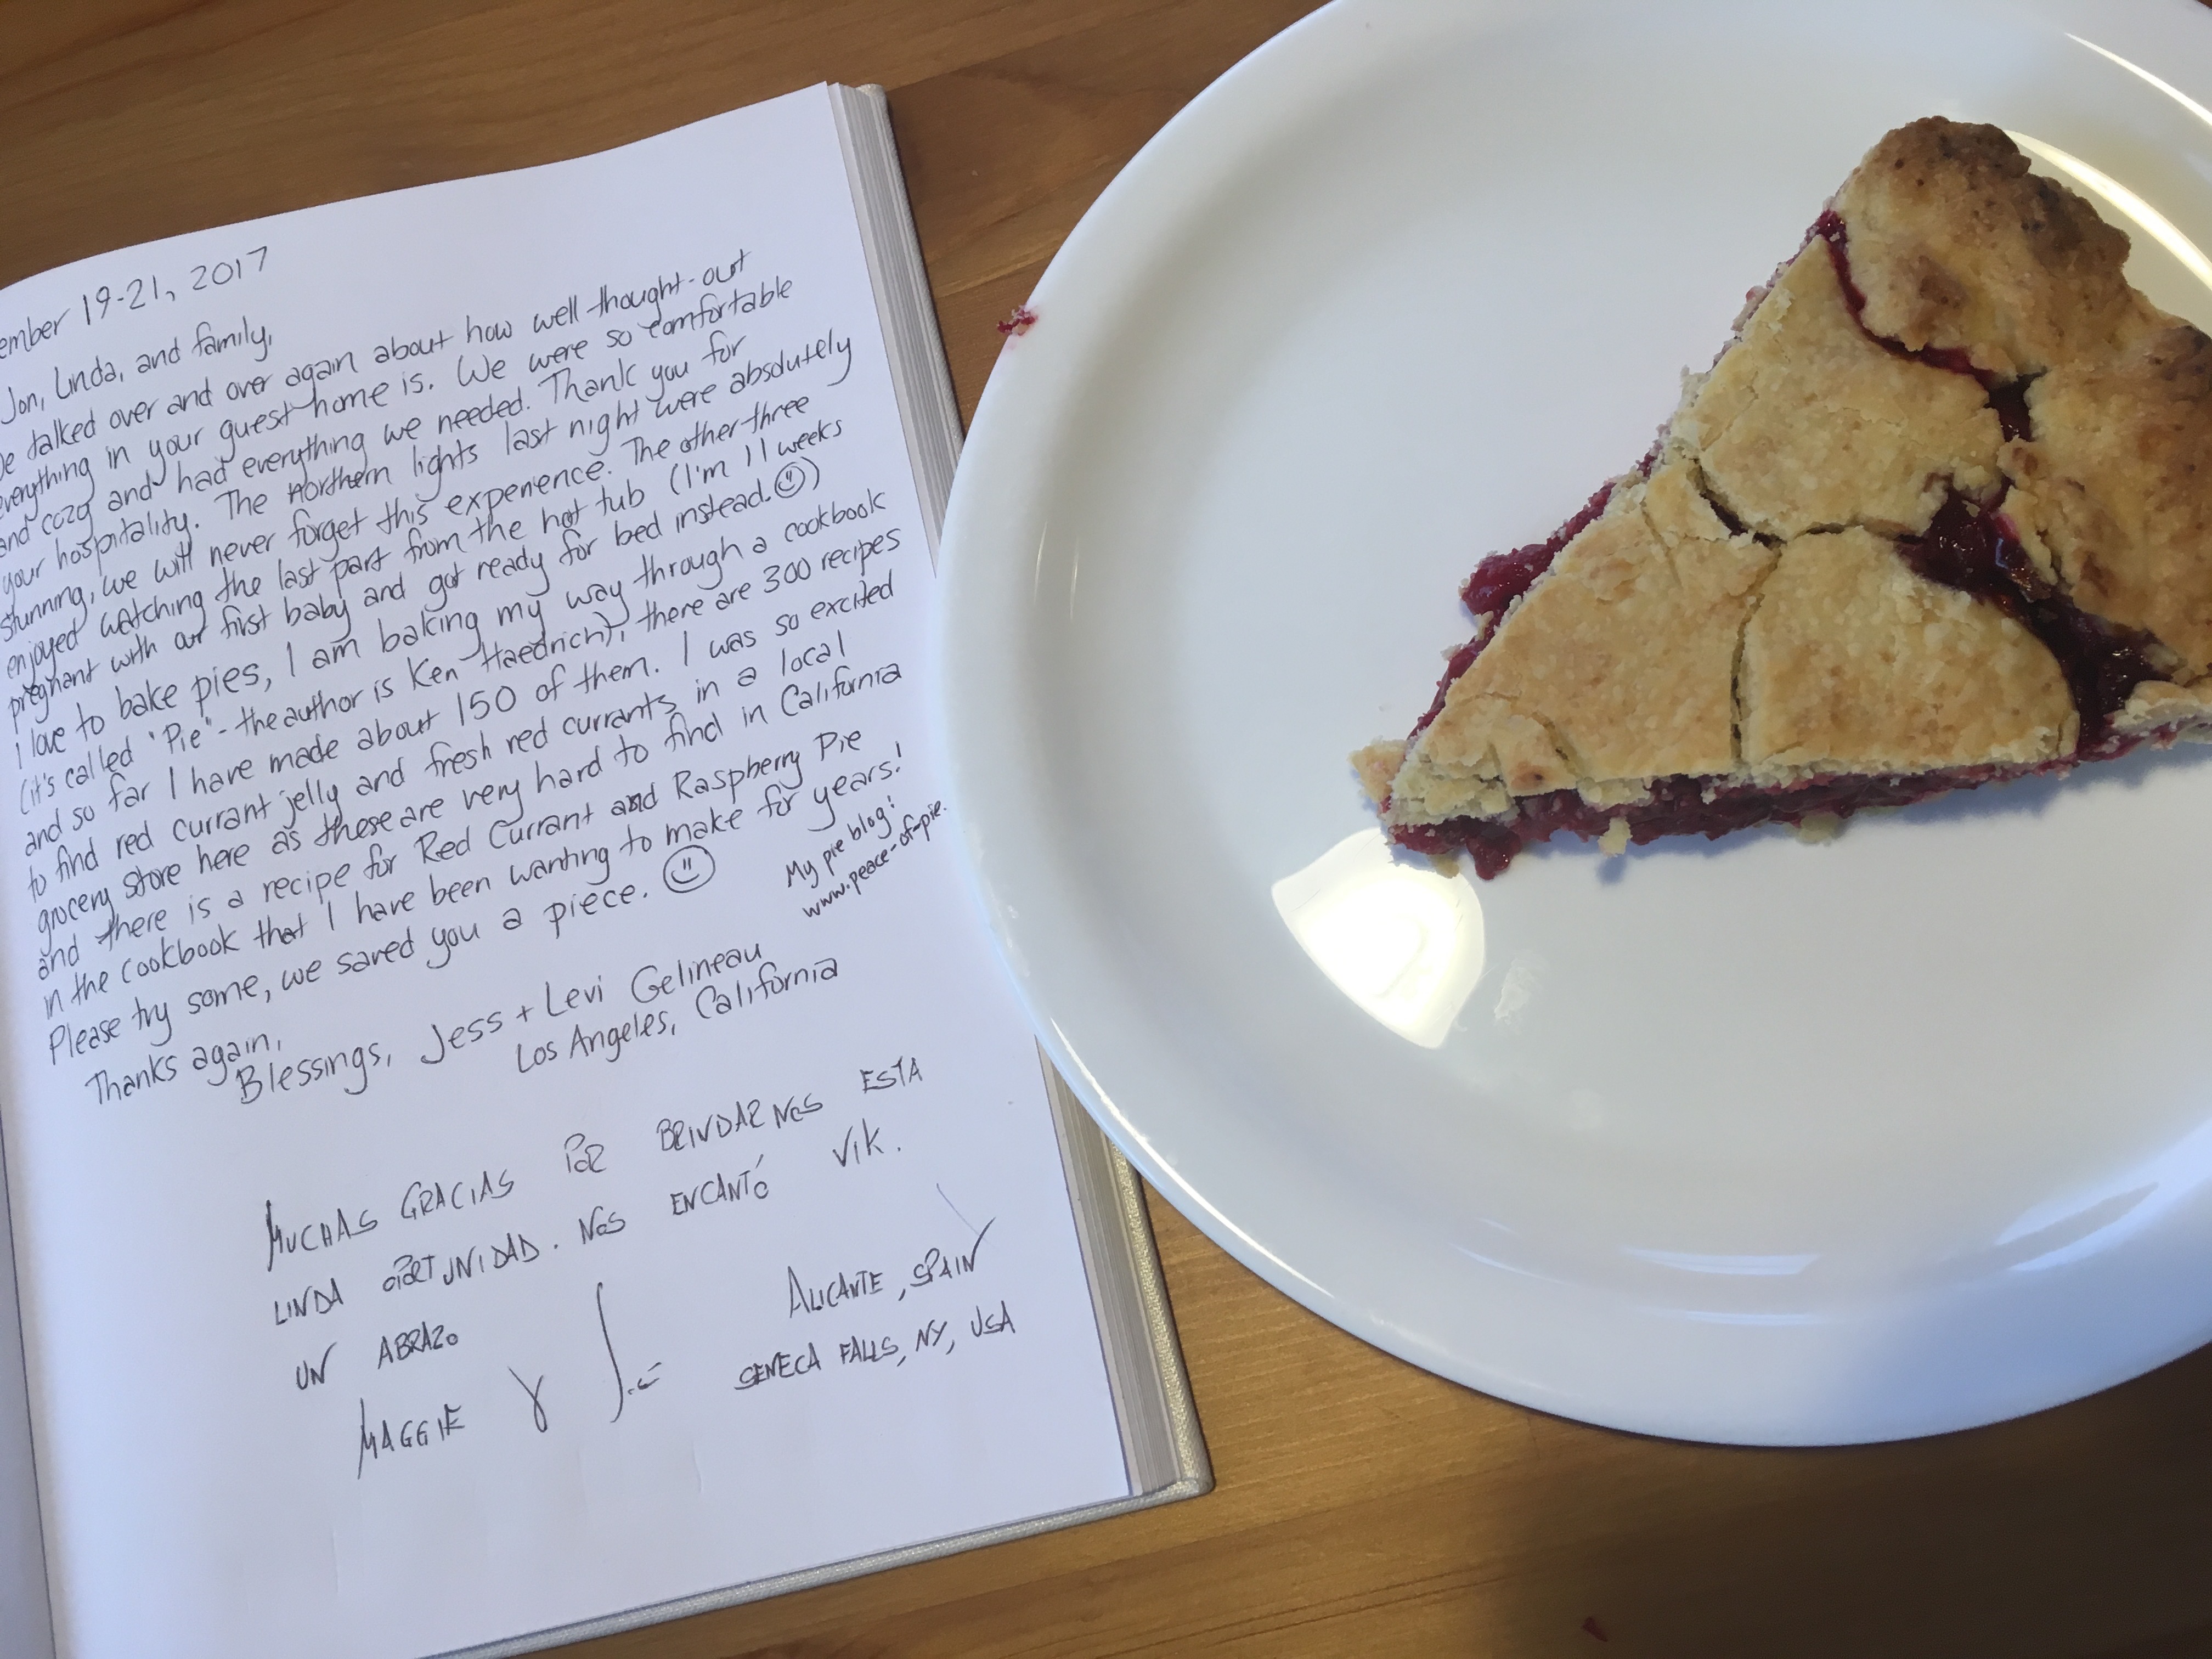 ember 19-21, 2017
Jon, Linda, and family,
e talked over and over again about how well thought-out
everything in your guest home is. We were so comfortable
and cozy and had everything we needed. Thank you for
your hospitality. The northern lights last night were absolutely
stunning, we will never forget this experience. The other three
enjoyed watching the last part from the hot tub (I'm 11 weeks
pregnant with our first baby and got ready for bed instead. ☺)
I love to bake pies, I am baking my way through a cookbook
(it's called "Pie" - the author is Ken Haedrich), there are 300 recipes
and so far I have made about 150 of them. I was so excited
to find red currant jelly and fresh red currants in a local
grocery store here as these are very hard to find in California
and there is a recipe for Red Currant and Raspberry Pie
in the cookbook that I have been wanting to make for years!
Please try some, we saved you a piece. ☺
My pie blog:
www.peace-of-pie.
Thanks again,
Blessings, Jess + Levi Gelineau
Los Angeles, California
MUCHAS GRACIAS POR BRINDARNOS ESTA
LINDA OPORTUNIDAD. NOS ENCANTÓ VIK.
UN ABRAZO
MAGGIE Y
ALICANTE, SPAIN
SENECA FALLS, NY, USA